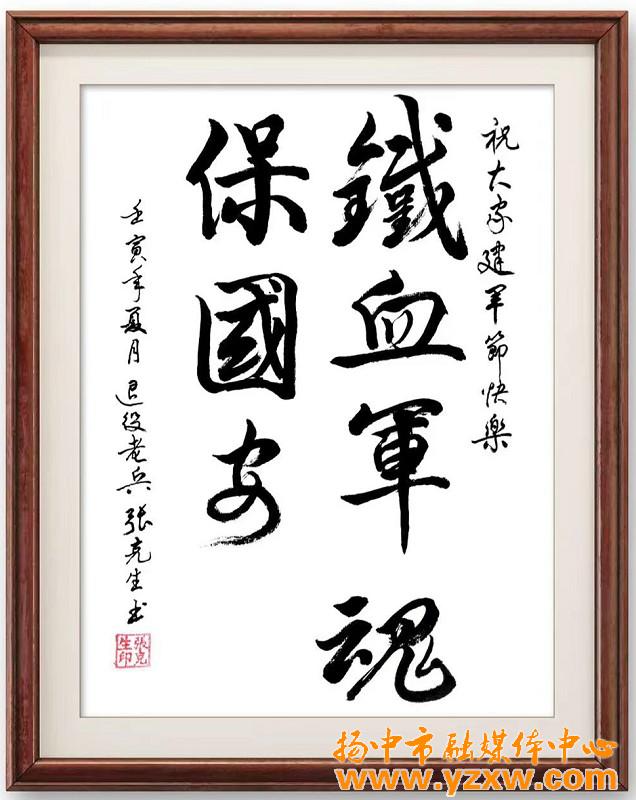 祝大家建军節快樂
鐵血軍魂
保國安
壬寅年夏月 退役老兵張克生书
張克生印
扬中市融媒体中心
www.yzxw.com